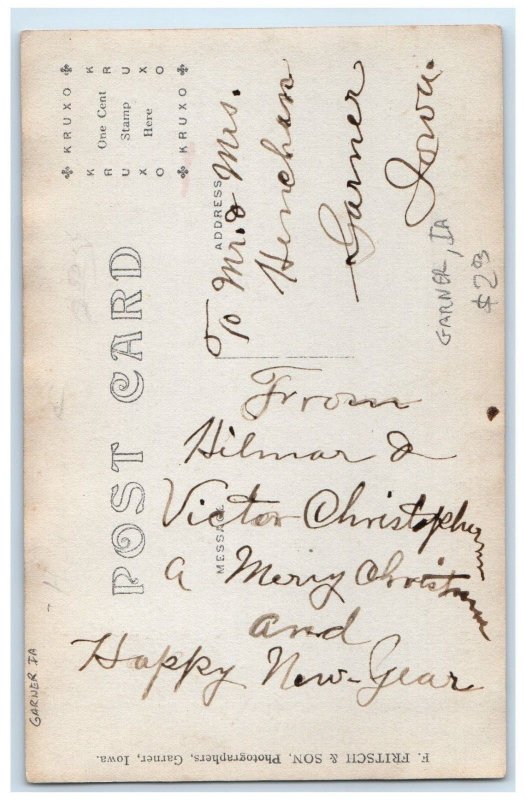 POST CARD
KRUXO
KRUXO
One Cent
Stamp
Here
KRUXO
KRUXO
ADDRESS
To Mr. & Mrs.
Henchan
Garner
Iowa.
GARNER, IA
$2.03
MESSAGE
From
Hilmar &
Victor Christopher
a Merry Christmas
and
Happy New-Year
F. FRITSCH & SON, Photographers, Garner, Iowa.
GARNER IA